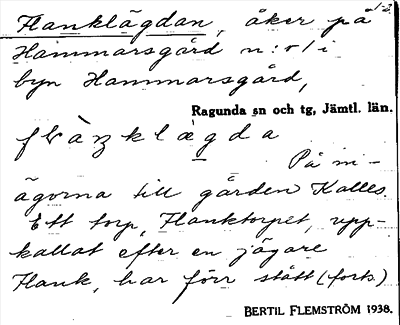 Flanklägdan, åker på
Hammarsgård n:o 1 i
byn Hammarsgård,
Ragunda sn och tg, Jämtl. län.
På in-
ägorna till gården Kalles.
Ett torp, Flanktorpet, upp-
kallat efter en jägare
Flank, har förr stått (forts.)
BERTIL FLEMSTRÖM 1938.